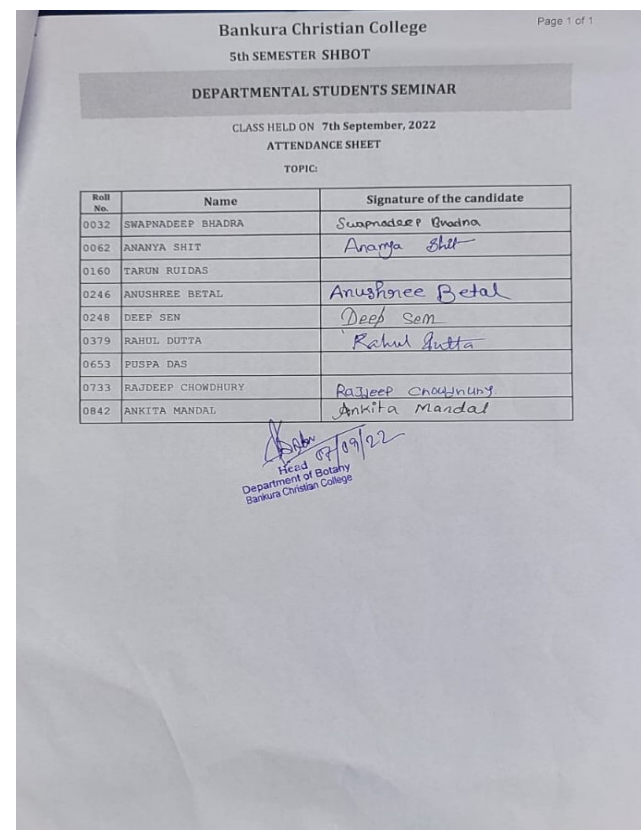 Page 1 of 1
Bankura Christian College
5th SEMESTER SHBOT
DEPARTMENTAL STUDENTS SEMINAR
CLASS HELD ON 7th September, 2022
ATTENDANCE SHEET
TOPIC:
Roll No. Name Signature of the candidate
0032 SWAPNADEEP BHADRA Swapnadeep Bhadra
0062 ANANYA SHIT Ananya Shit
0160 TARUN RUIDAS
0246 ANUSHREE BETAL Anushree Betal
0248 DEEP SEN Deep Sen
0379 RAHUL DUTTA Rahul Dutta
0653 PUSPA DAS
0733 RAJDEEP CHOWDHURY Rajdeep Chowdhury
0842 ANKITA MANDAL Ankita Mandal
07/09/22
Head
Department of Botany
Bankura Christian College